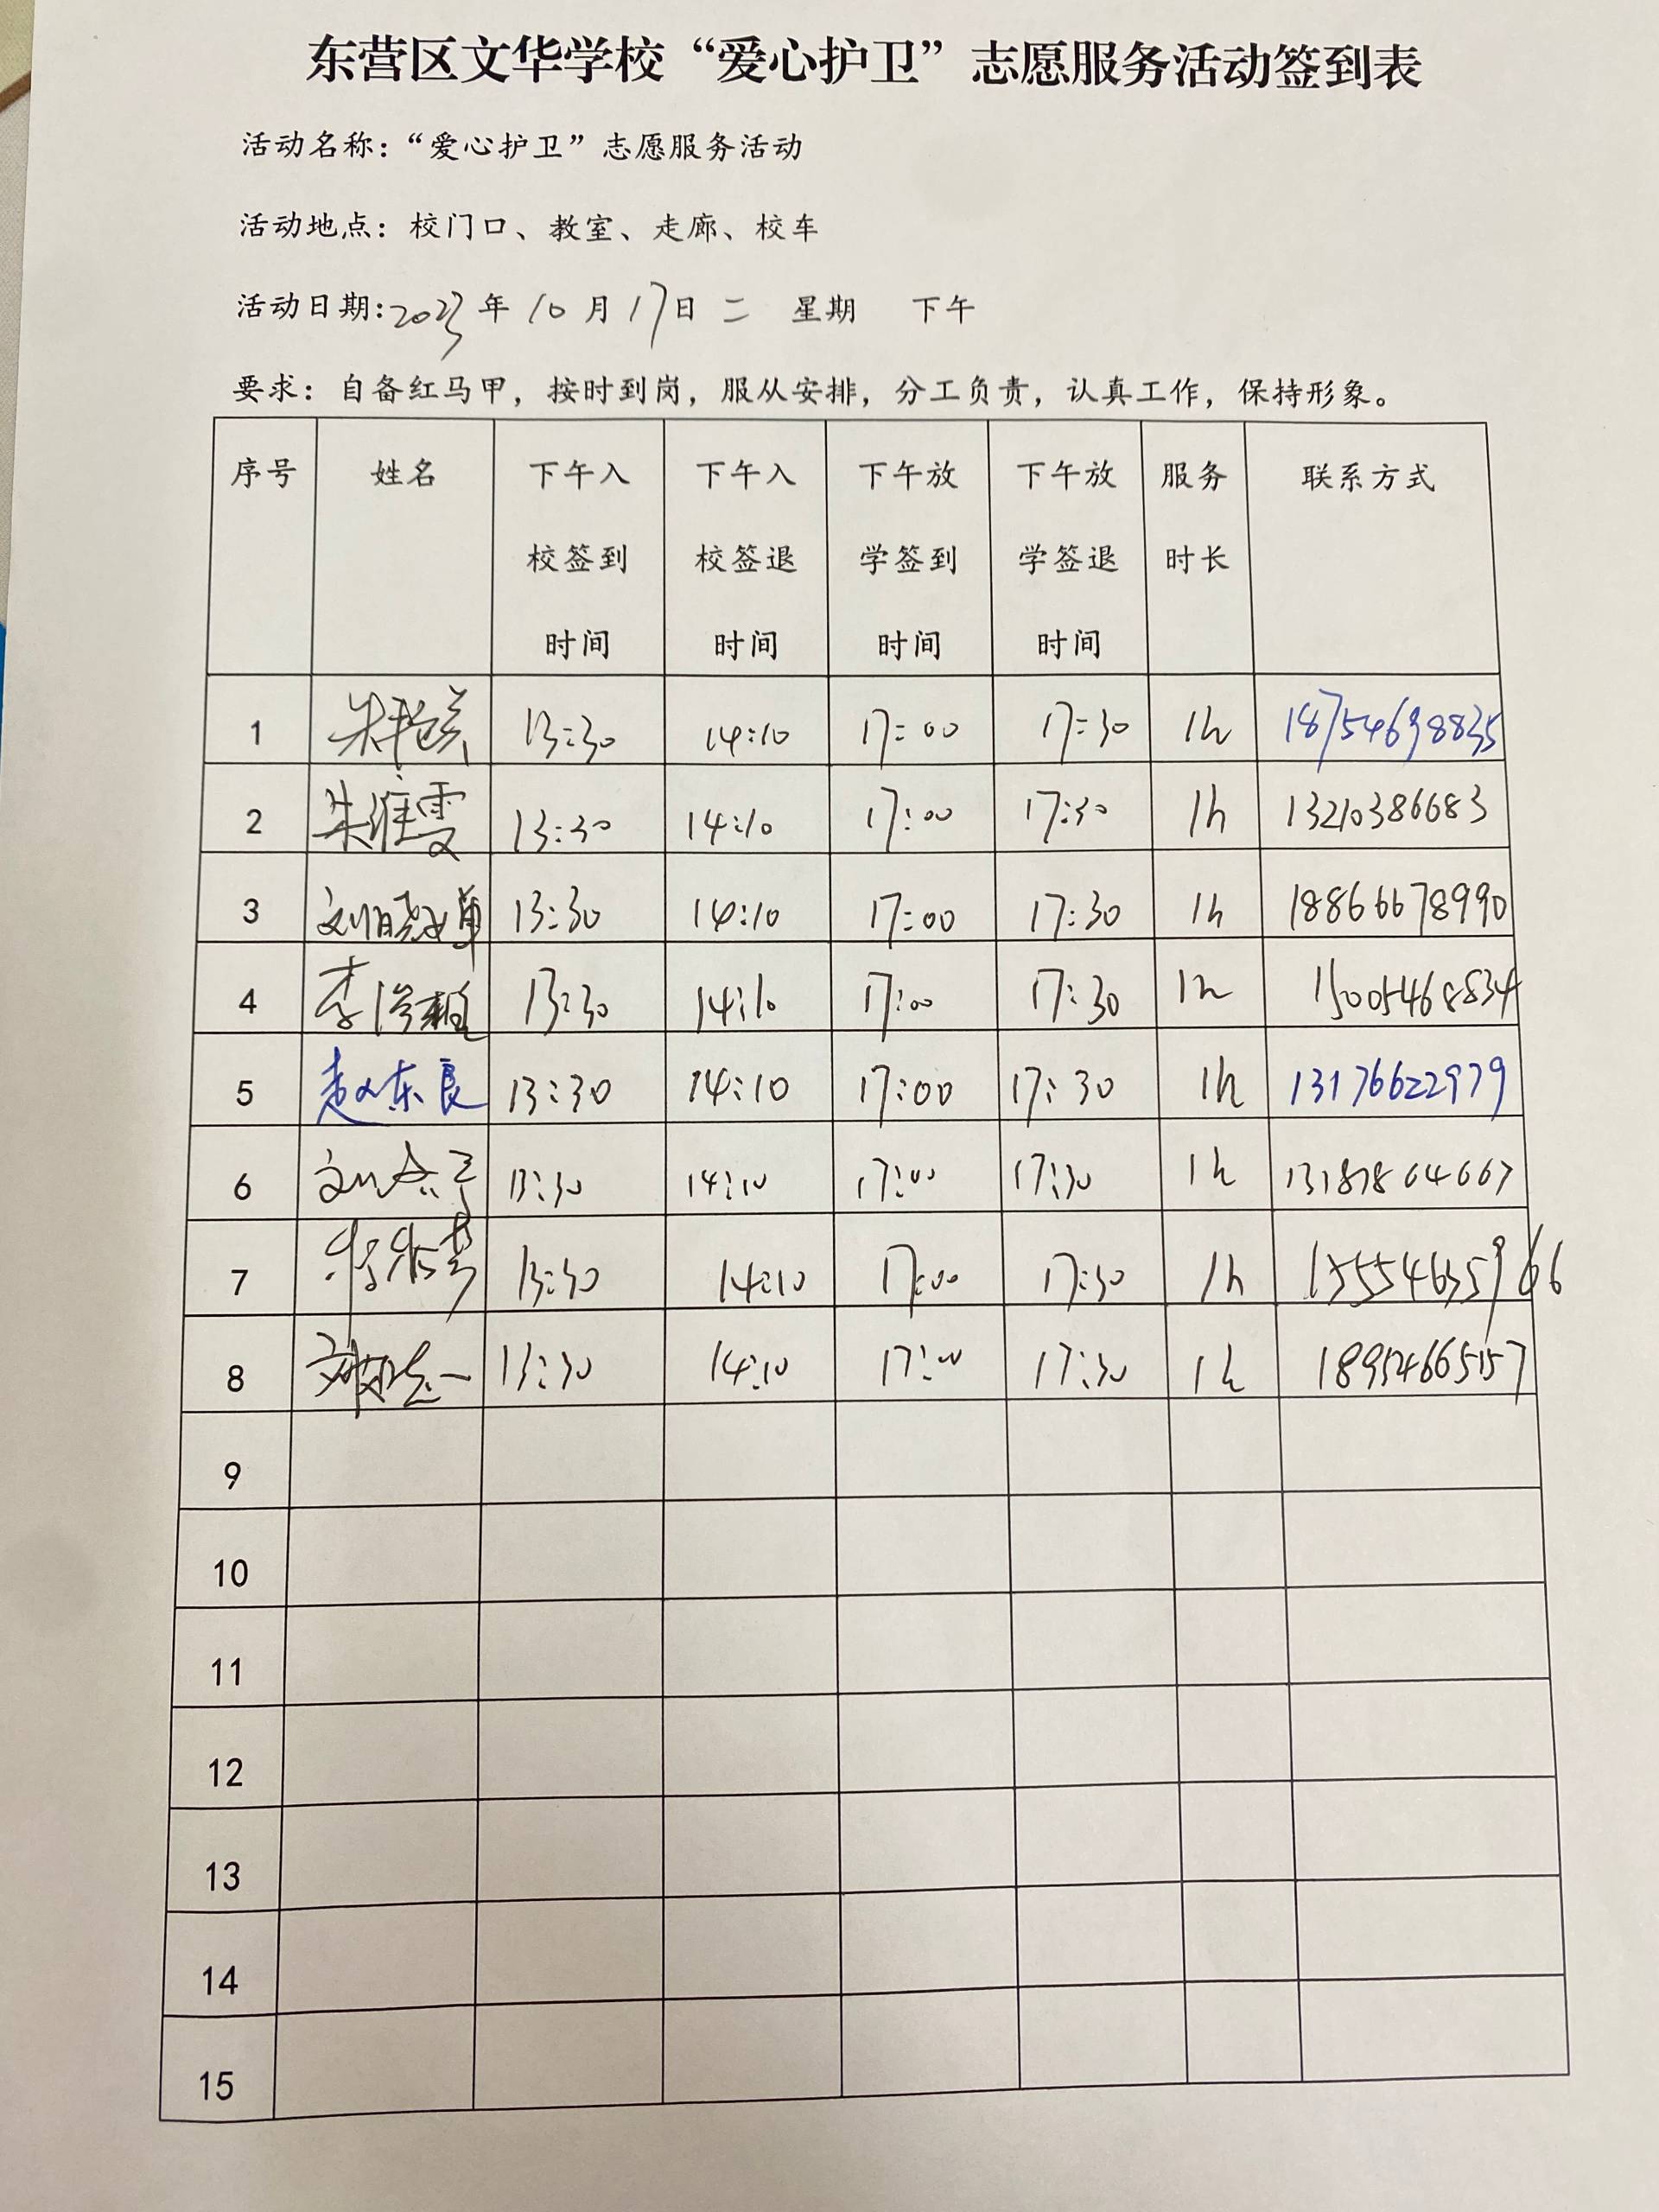 东营区文华学校“爱心护卫”志愿服务活动签到表
活动名称：“爱心护卫”志愿服务活动
活动地点：校门口、教室、走廊、校车
活动日期:2023年10月17日 二 星期 下午
要求：自备红马甲，按时到岗，服从安排，分工负责，认真工作，保持形象。
序号 姓名 下午入校签到时间 下午入校签退时间 下午放学签到时间 下午放学签退时间 服务时长 联系方式
1 13:30 14:10 17:00 17:30 1h 18754698835
2 朱淮雯 13:30 14:10 17:00 17:30 1h 13210386683
3 13:30 14:10 17:00 17:30 1h 18866678990
4 13:30 14:10 17:00 17:30 1h 15005468834
5 赵东良 13:30 14:10 17:00 17:30 1h 13176622979
6 13:30 14:10 17:00 17:30 1h
7 13:30 14:10 17:00 17:30 1h 15554635966
8 13:30 14:10 17:00 17:30 1h 18954665157
9
10
11
12
13
14
15